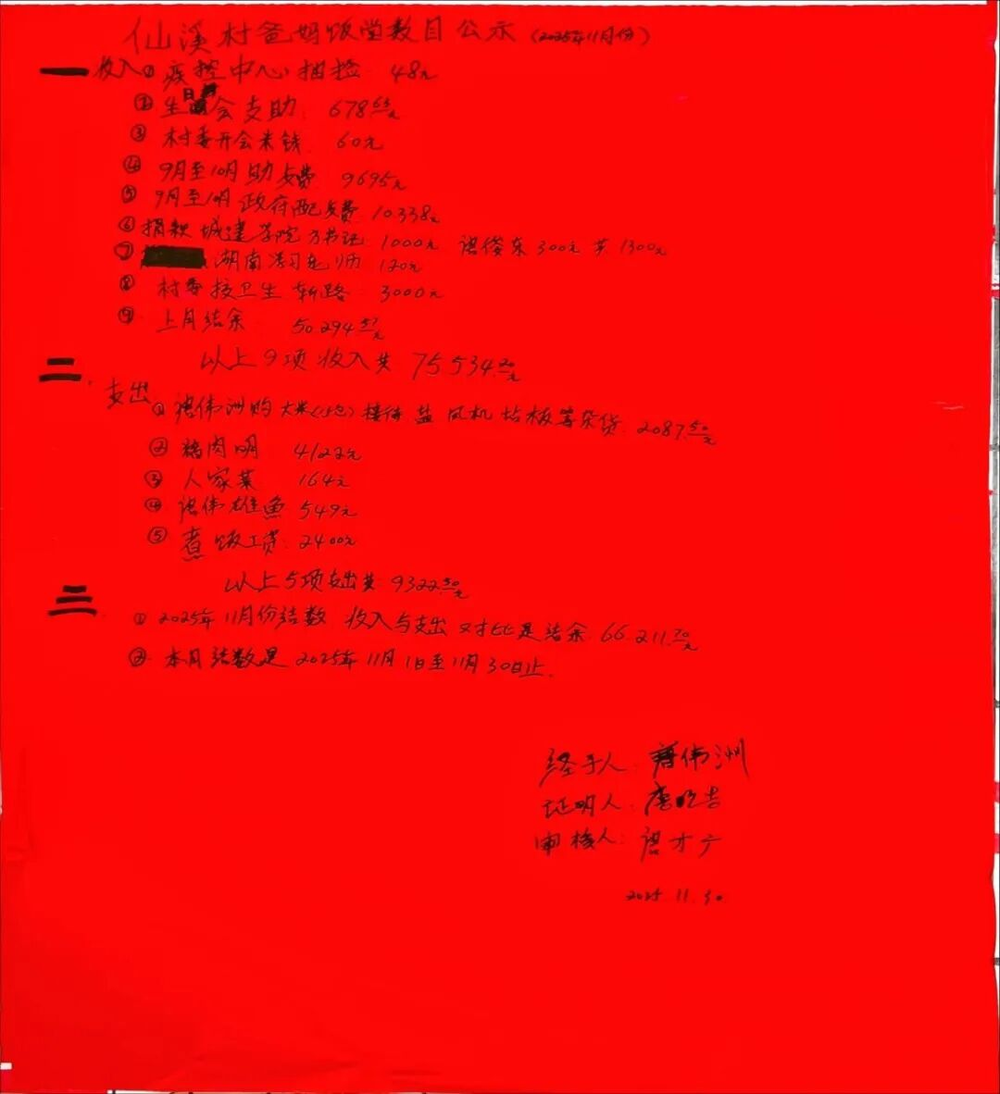 仙溪村爸妈饭堂数目公示(2025年11月份)
一 收入① 疾控中心抽检 48元
② 生日会支助: 678.63元
③ 村委开会米钱 60元
④ 9月至10月助餐费 9695元
⑤ 9月至10月政府配餐费 10338元
⑥ 捐款 城建学院方书记: 1000元 谭俊东300元 共1300元
⑦ 湖南学习老师 120元
⑧ 村委按卫生 斩路: 3000元
⑨ 上月结余 50.294.57元
以上9项收入共 75534.20元
二.
支出① 伟洲购大米 盐 风机 站板等杂货: 2087.50元
② 猪肉明 4122元
③ 人家菜 164元
④ 伟雄鱼 549元
⑤ 煮饭工资: 2400元
以上5项支出共: 9322.50元
三
① 2025年11月份结数 收入与支出对比是结余66.211.70元
② 本月结数是2025年11月1日至11月30日止.
经手人: 伟洲
证明人:
审核人: 才广
2025.11.30